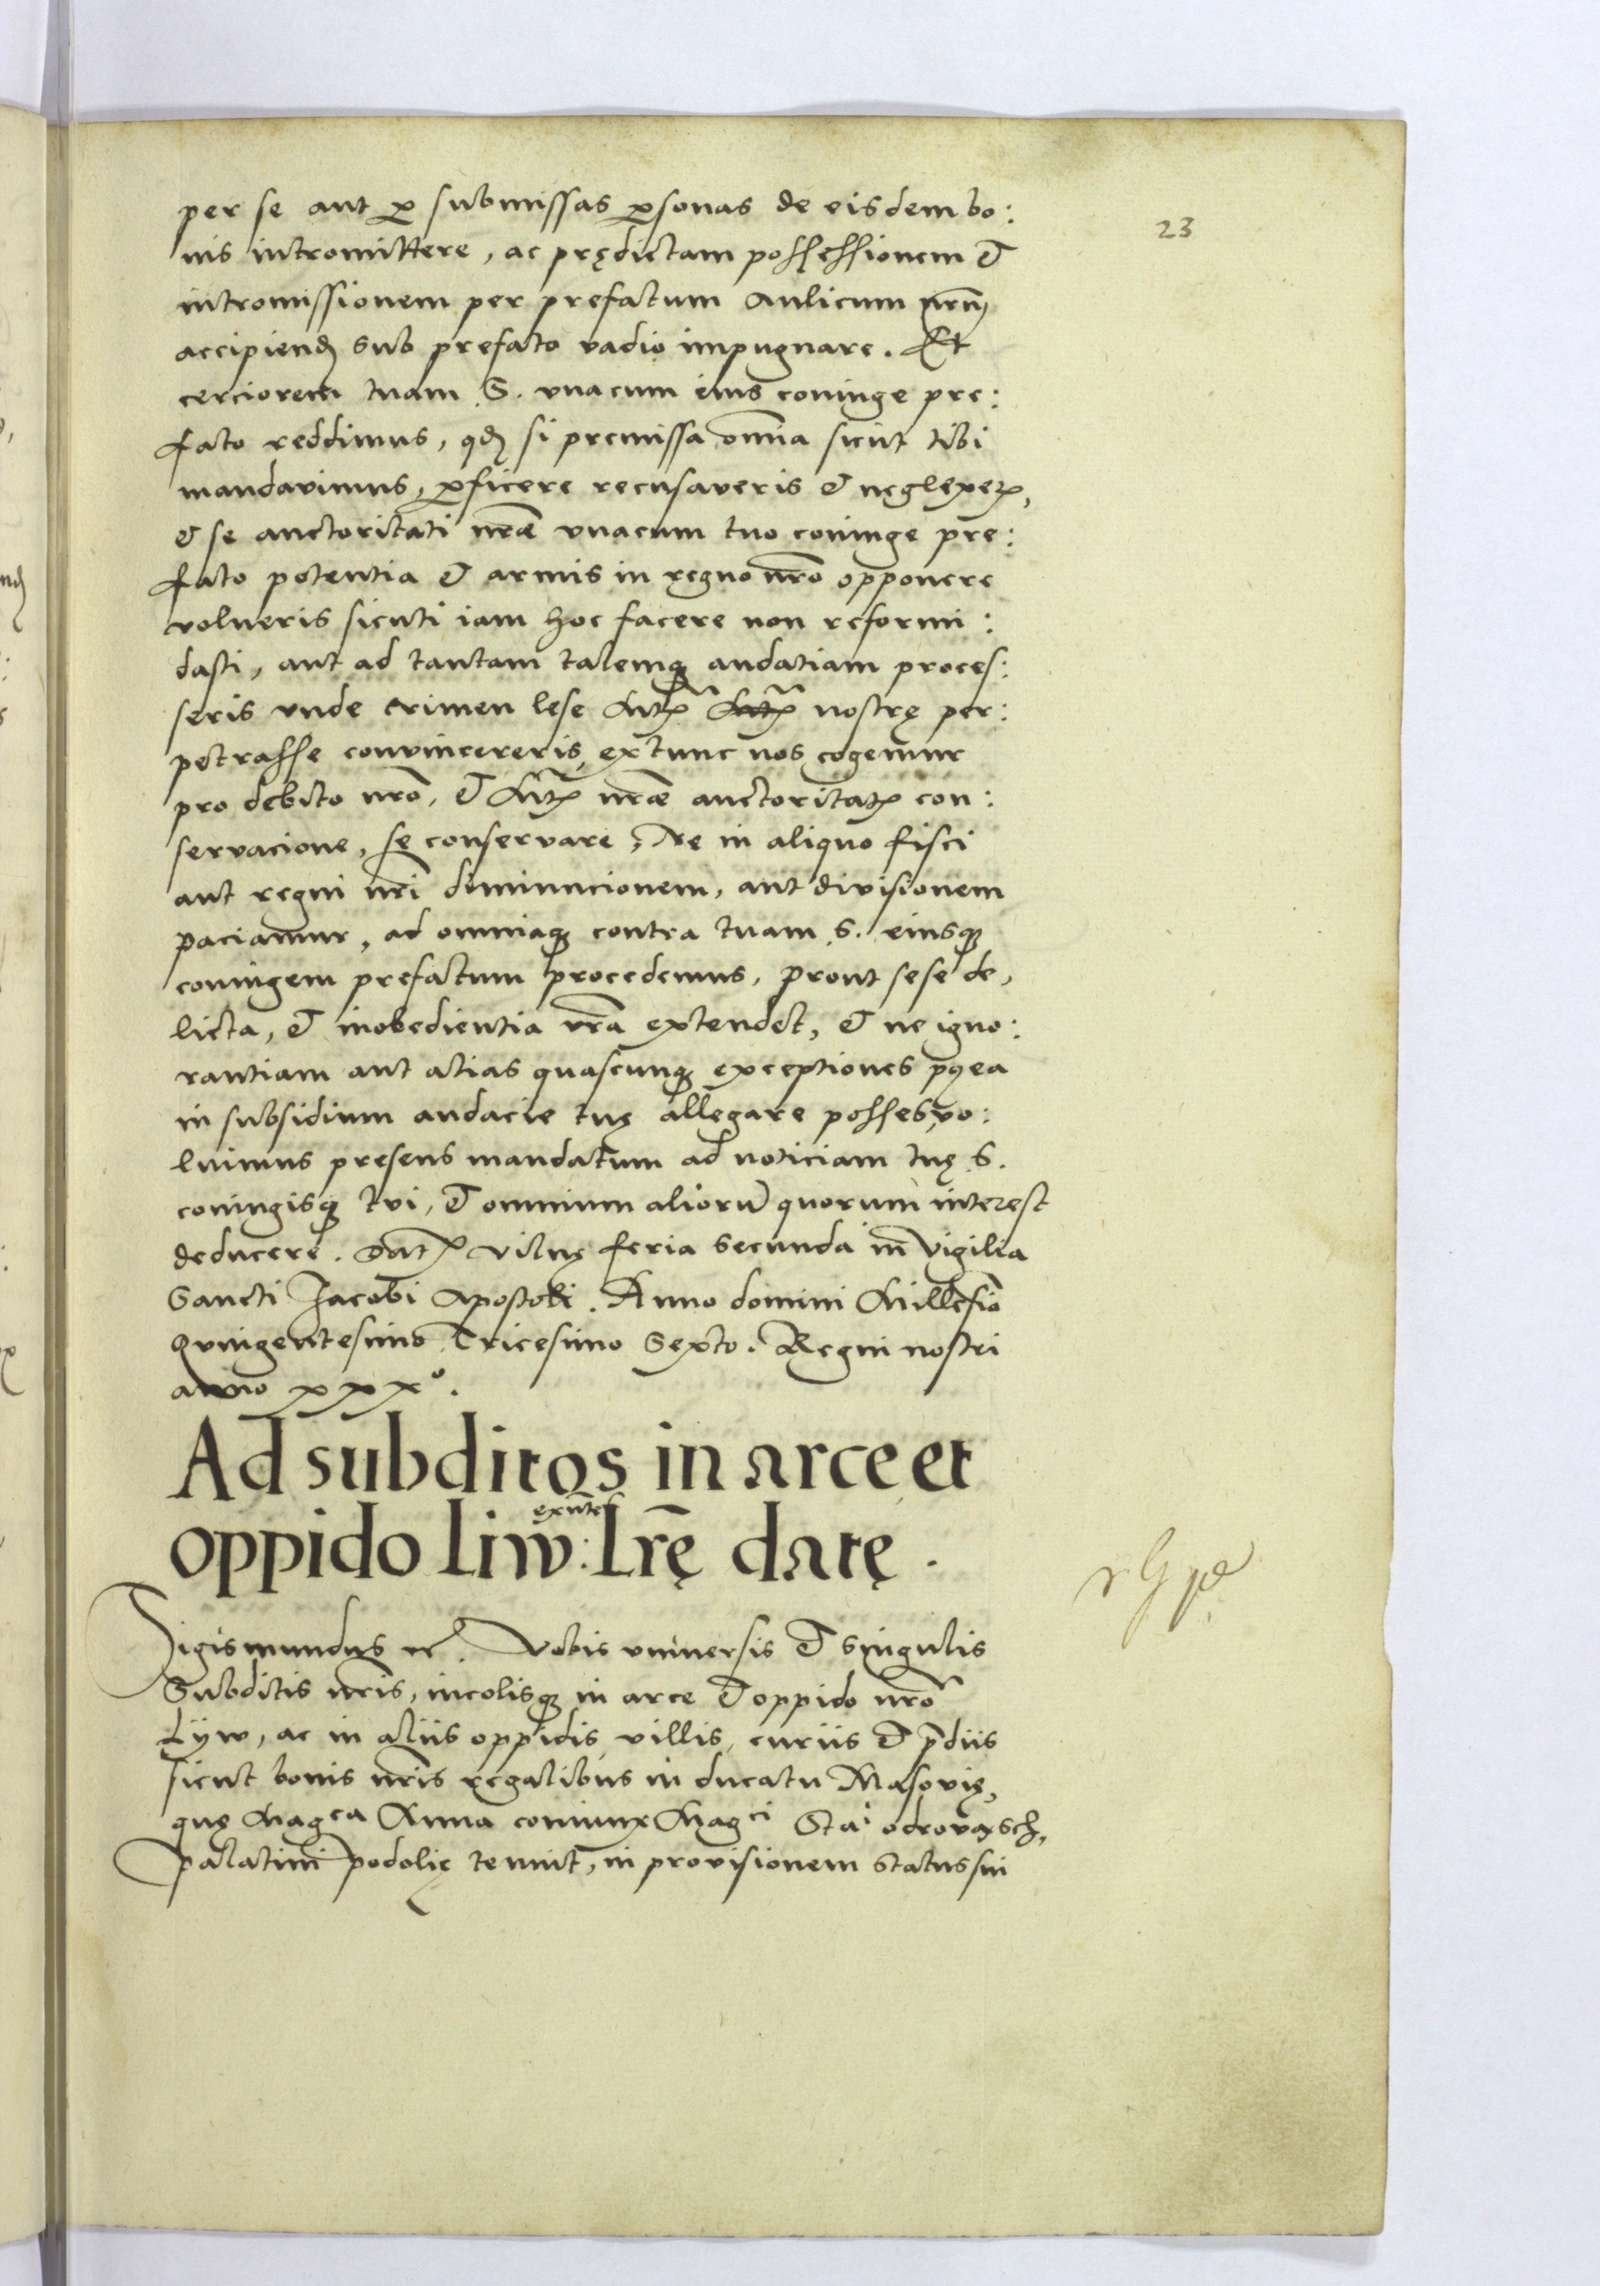 23
per se aut p submissas psonas de eisdem bo:
nis intromittere, ac prędictam possęssionem et
intromissionem per prefatum aulicum nrm
accipiend sub prefato vadio impugnare. Et
cerciorem tuam S. vnacum eius coniuge pre:
fato reddimus, qd si premissa omia sicut tibi
mandavimus, pficere recusaveris et neglexer,
et se auctoritati nræ vnacum tuo coniuge pre:
fato potentia et armis in regno nro opponere
volueris sicuti iam hoc facere non reformi:
dasti, aut ad tantam talemq audatiam proces:
seris vnde crimen lese nostrę per:
petrasse convincereris, extunc nos cogemur
pro debito nro, et nræ auctoritatis con:
servacione, se conservare, Ne in aliquo fisci
aut regni nri diminucionem, aut divisionem
paciamur, ad omniaq contra tuam S. eiusq
coniugem prefatum procedemus, prout sese de,
licta, et inobedientia vra extendet, et ne igno:
rantiam aut alias quascunq exceptiones
in subsidium audacie tuę allegare posses, vo:
luimus presens mandatum ad noticiam tuę S.
coniugisq tvi, et omnium alioru quorum interest
deducere. Dat Vilnę feria secunda in Vigilia
Sancti Jacobi Apostoli. Anno domini Millesio
Quingentesimo Tricesimo Sexto. Regni nostri
anno xxx°.
Ad subditos in arce et
oppido Liw: exntes Lrę datę.
Sigismundus etc. Vobis vniuersis et singulis
Subditis nris, incolisq in arce et oppido nro
Lyw, ac in aliis oppidis, villis, curiis et pdiis
sicut bonis nris regalibus in ducatu Masovię,
quę Magca Anna coniunx Magci Stai odrovasch,
palatini podolię tenuit, in provisionem status sui